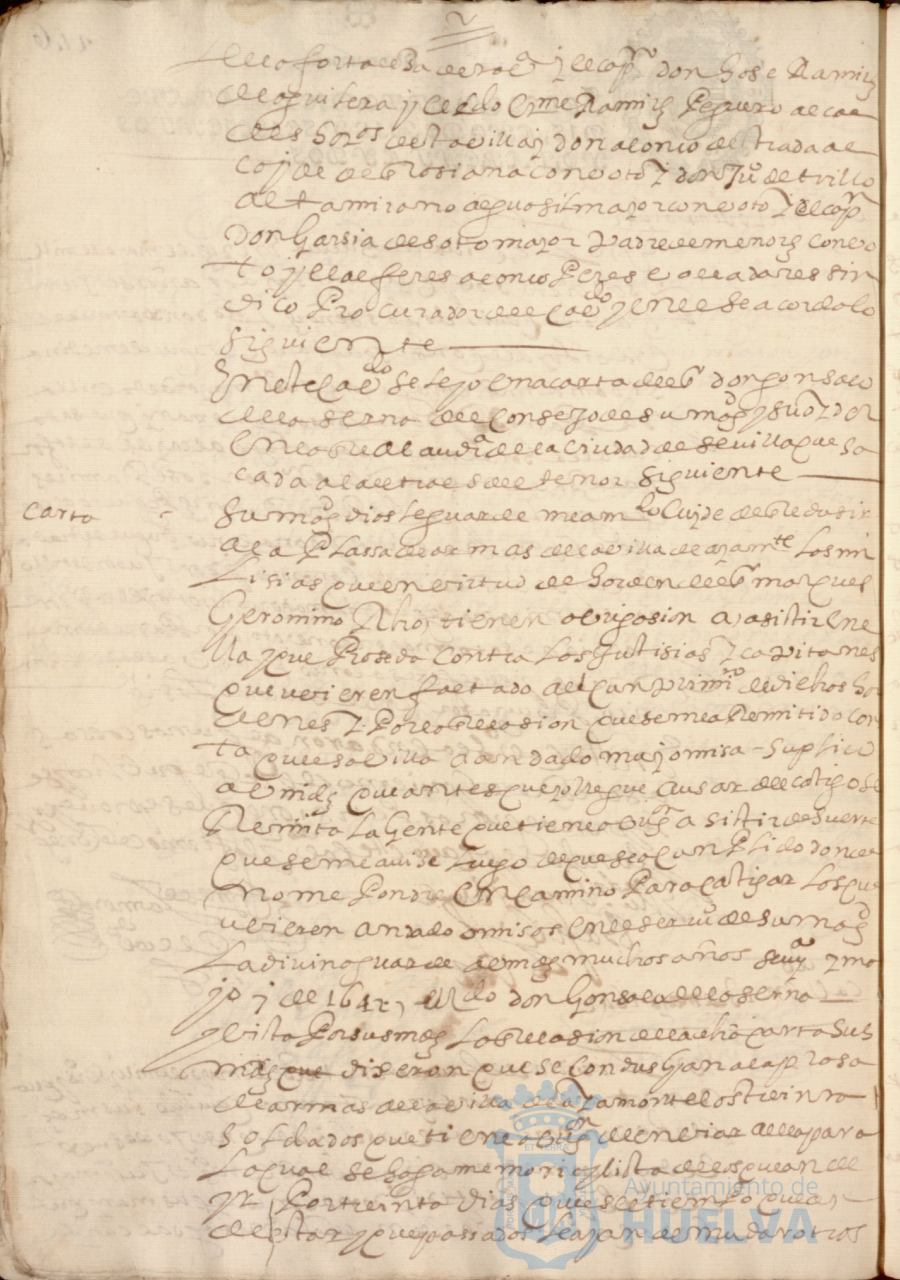 don Jose Ramirz
de aguilera y el
desta villa don alonso de estrada
con voto y don Ju° de trillo
altamirano alguasil mayor con voto y el capn
Don Garsia de sotomayor Padre de menores con vo
to y el alferes alonso Peres sin
dico Procurador del cabdo y en el se acordo lo
siguiente
En este cabdo se leyo una carta del sr don gonsalo
de la serna del Consejo de su magd y su oydor
en la rl audia de la ciudad de sevilla que sa
cada a la letra es del tenor siguiente
carta
su magd dios le guarde me a mdo cuide de redusir
a la Plassa de armas de la villa de ayamte los mi
lisias que en virtud de horden del sr marques
Geronimo Rho tienen obligasion a asistir en e
lla y que Proseda contra los Justisias y capitanes
que uvieren faltado al cunplimito de dichos hor
denes y Por la relasion que se me a Remitido cons
ta que esa villa a andado muy omisa - suplico
a vmds que antes que yo llegue a usar del castigo se
Remita la Gente que tiene oblign a sistir de suerte
que se me avise luego de que se a cunPlido donde
no me Pondre en camino Para castigar los que
uvieren andado omisos en el servo de su magd
La divina guarde a vmds muchos años seva y ma
yo 7 de 1642 , el Ldo don Gonsalo de la serna
y vista Por sus mds la relasion de la dha carta sus
mds que dixeron que se condusgan a la plasa
de armas de la villa de ayamonte los treinta
soldados que tiene oblign de enviar a ella para
lo qual se haga memoria y lista de los que an de
yr Por treinta dias que es el tiempo que an
de estar y que passados se ayan de mudar otros
Ayuntamiento de
HUELVA